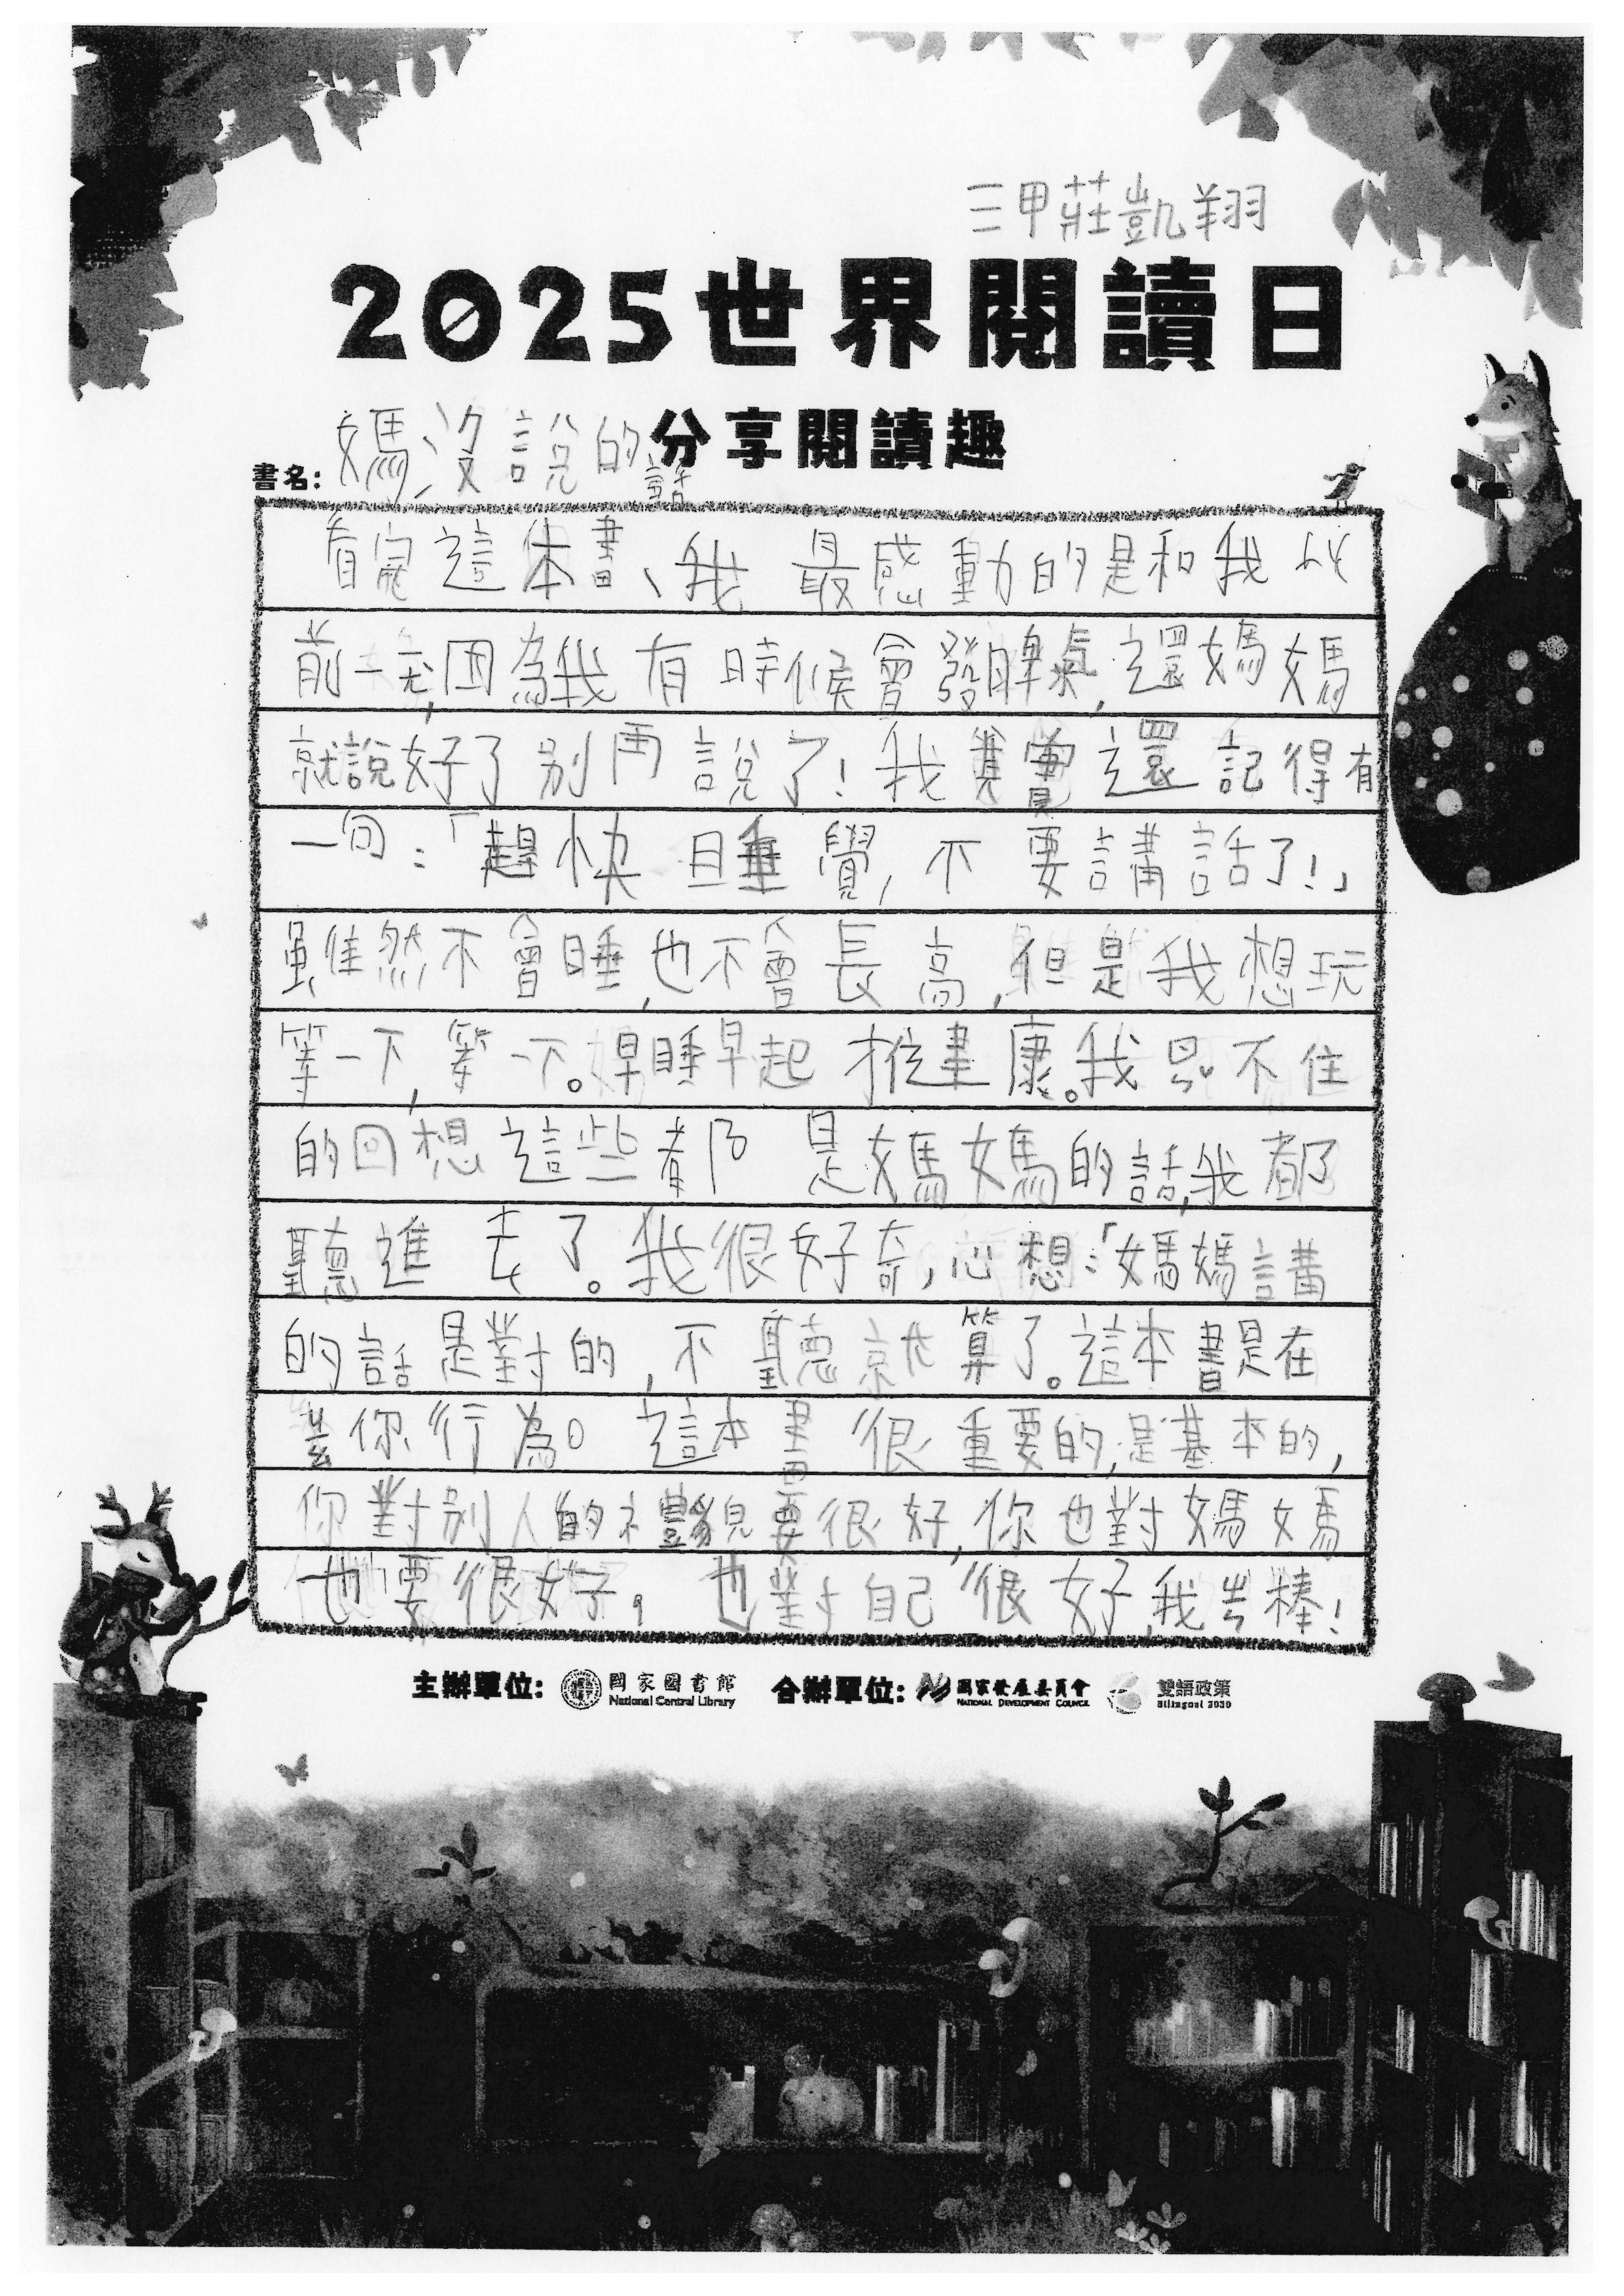 三甲莊凱翔
2025世界閱讀日
媽沒說的話
分享閱讀趣
書名:
看完這本書、我最感動的是和我以
前一先,因為我有時候會發脾氣,還媽媽
就說好了別再說了!我其實還記得有
一句:「趕快睡覺,不要講話了!」
雖然不會睡,也不會長高,但是我想玩
等一下,等一下。早睡早起健康。我忍不住
的回想這些都是媽媽的話,我都
聽進去了。我很好奇,心想:「媽媽講
的話是對的,不聽就算了。這本書是在
你行為。這本書很重要的,是基本的,
你對別人的禮貌要很好,你也對媽媽
也要很好。也對自己很好,我棒!
主辦單位: 國家圖書館 National Central Library 合辦單位: 國家發展委員會 NATIONAL DEVELOPMENT COUNCIL 雙語政策 Bilingual 2030